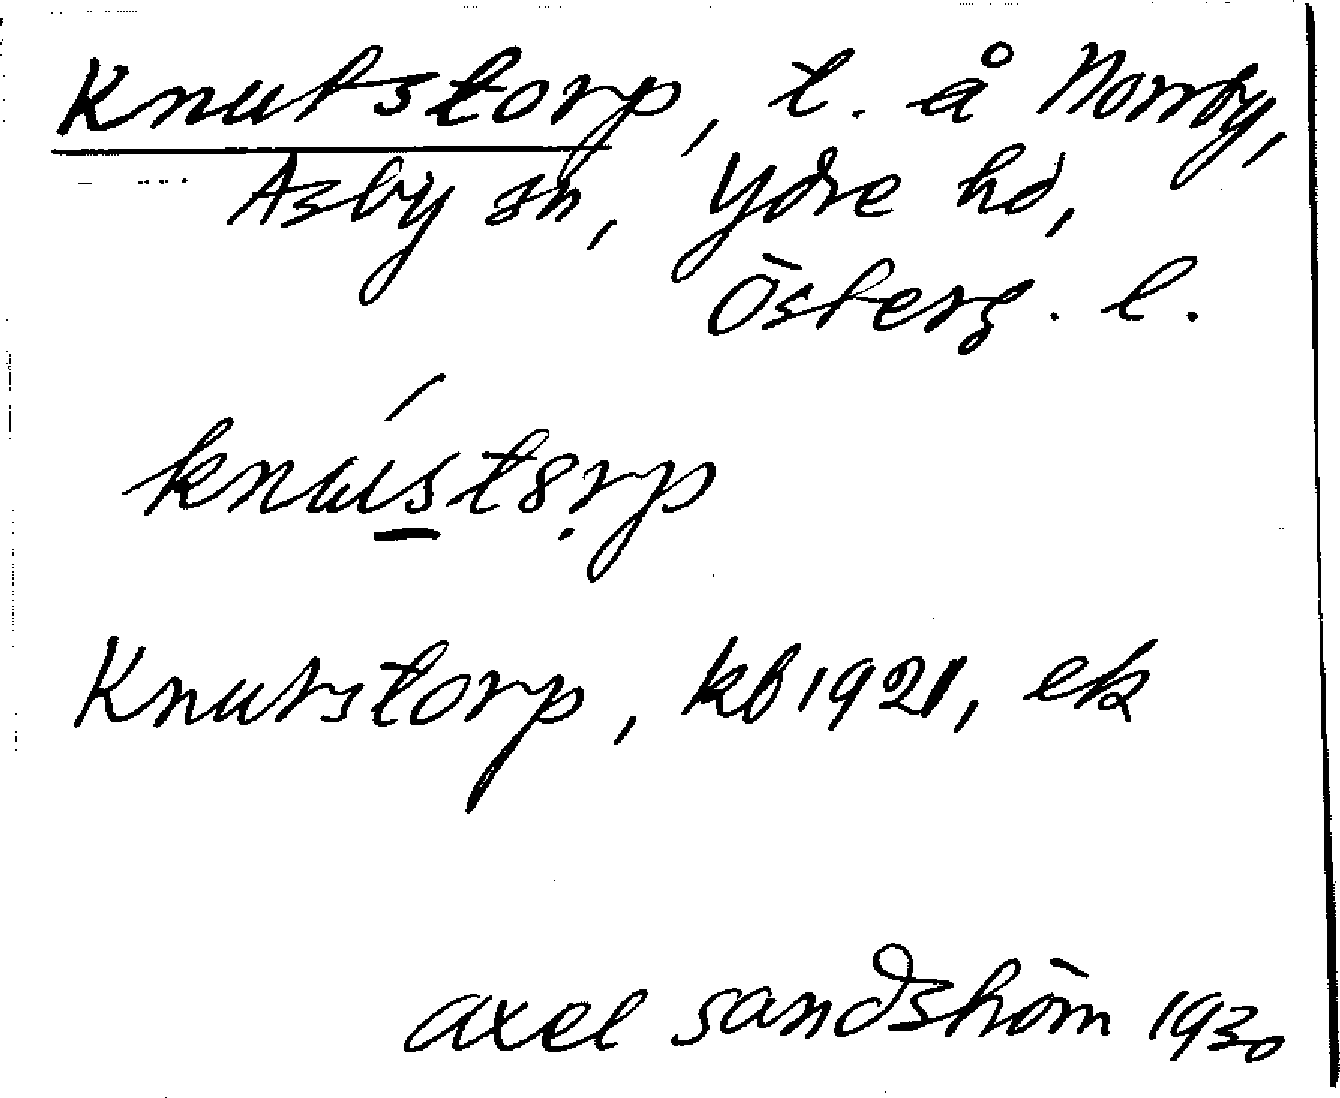 Knutstorp, t. å Norrby,
Asby sn, Ydre hd,
Österg. l.
Knutstorp, kb 1921, ek
axel sandström 1930